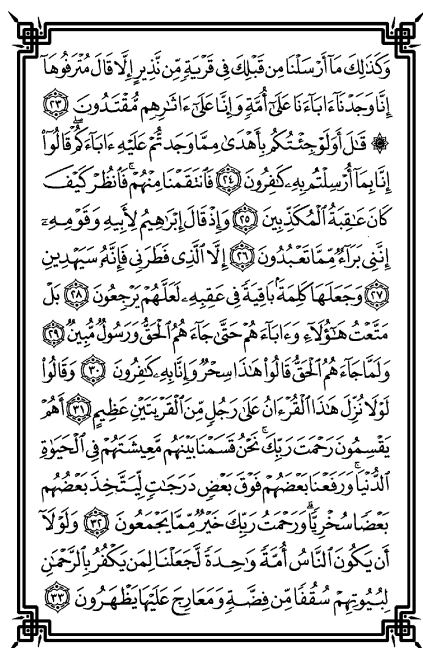 وَكَذَٰلِكَ مَآ أَرْسَلْنَا مِن قَبْلِكَ فِى قَرْيَةٍ مِّن نَّذِيرٍ إِلَّا قَالَ مُتْرَفُوهَآ
إِنَّا وَجَدْنَآ ءَابَآءَنَا عَلَىٰٓ أُمَّةٍ وَإِنَّا عَلَىٰٓ ءَاثَٰرِهِم مُّقْتَدُونَ ٢٣
۞ قَٰلَ أَوَلَوْ جِئْتُكُم بِأَهْدَىٰ مِمَّا وَجَدتُّمْ عَلَيْهِ ءَابَآءَكُمْ ۖ قَالُوٓا۟
إِنَّا بِمَآ أُرْسِلْتُم بِهِۦ كَٰفِرُونَ ٢٤ فَٱنتَقَمْنَا مِنْهُمْ ۖ فَٱنظُرْ كَيْفَ
كَانَ عَٰقِبَةُ ٱلْمُكَذِّبِينَ ٢٥ وَإِذْ قَالَ إِبْرَٰهِيمُ لِأَبِيهِ وَقَوْمِهِۦٓ
إِنَّنِى بَرَآءٌ مِّمَّا تَعْبُدُونَ ٢٦ إِلَّا ٱلَّذِى فَطَرَنِى فَإِنَّهُۥ سَيَهْدِينِ
٢٧ وَجَعَلَهَا كَلِمَةًۢ بَاقِيَةً فِى عَقِبِهِۦ لَعَلَّهُمْ يَرْجِعُونَ ٢٨ بَلْ
مَتَّعْتُ هَٰٓؤُلَآءِ وَءَابَآءَهُمْ حَتَّىٰ جَآءَهُمُ ٱلْحَقُّ وَرَسُولٌ مُّبِينٌ ٢٩
وَلَمَّا جَآءَهُمُ ٱلْحَقُّ قَالُوا۟ هَٰذَا سِحْرٌ وَإِنَّا بِهِۦ كَٰفِرُونَ ٣٠ وَقَالُوا۟
لَوْلَا نُزِّلَ هَٰذَا ٱلْقُرْءَانُ عَلَىٰ رَجُلٍ مِّنَ ٱلْقَرْيَتَيْنِ عَظِيمٍ ٣١ أَهُمْ
يَقْسِمُونَ رَحْمَتَ رَبِّكَ ۚ نَحْنُ قَسَمْنَا بَيْنَهُم مَّعِيشَتَهُمْ فِى ٱلْحَيَوٰةِ
ٱلدُّنْيَا ۚ وَرَفَعْنَا بَعْضَهُمْ فَوْقَ بَعْضٍ دَرَجَٰتٍ لِّيَتَّخِذَ بَعْضُهُم
بَعْضًا سُخْرِيًّا ۗ وَرَحْمَتُ رَبِّكَ خَيْرٌ مِّمَّا يَجْمَعُونَ ٣٢ وَلَوْلَآ
أَن يَكُونَ ٱلنَّاسُ أُمَّةً وَٰحِدَةً لَّجَعَلْنَا لِمَن يَكْفُرُ بِٱلرَّحْمَٰنِ
لِبُيُوتِهِمْ سُقُفًا مِّن فِضَّةٍ وَمَعَارِجَ عَلَيْهَا يَظْهَرُونَ ٣٣